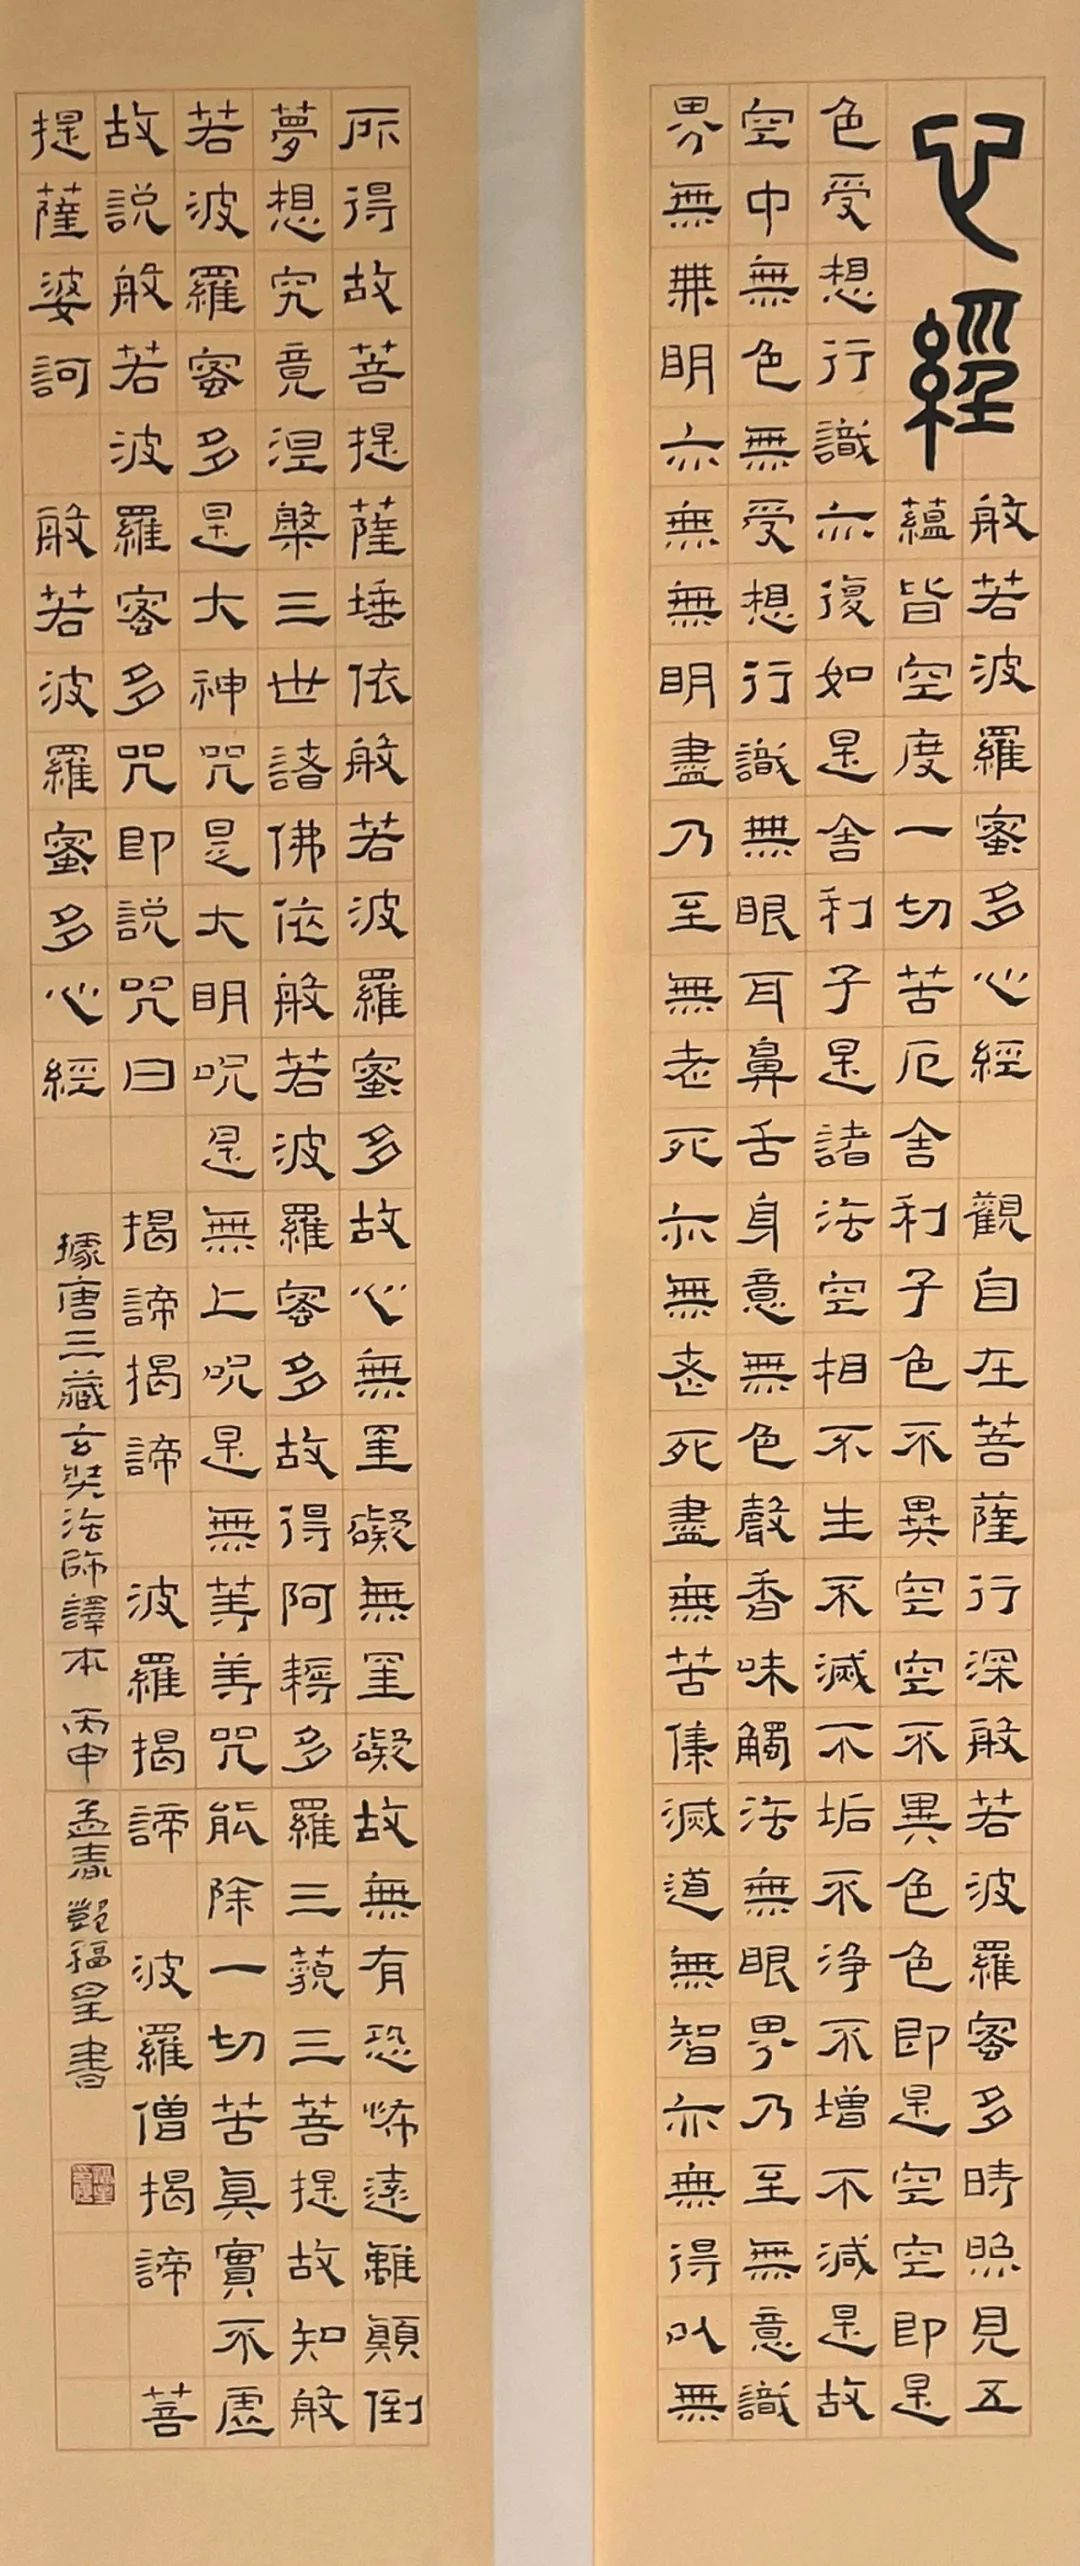 心經
般若波羅蜜多心經 觀自在菩薩行深般若波羅密多時照見五
蘊皆空度一切苦厄舍利子色不異空空不異色色即是空空即是
色受想行識亦復如是舍利子是諸法空相不生不滅不垢不淨不增不減是故
空中無色無受想行識無眼耳鼻舌身意無色聲香味觸法無眼界乃至無意識
界無無明亦無無明盡乃至無老死亦無老死盡無苦集滅道無智亦無得以無
所得故菩提薩埵依般若波羅蜜多故心無罣礙無罣礙故無有恐怖遠離顛倒
夢想究竟涅槃三世諸佛依般若波羅密多故得阿耨多羅三藐三菩提故知般
若波羅蜜多是大神咒是大明呪是無上呪是無等等咒能除一切苦真實不虛
故說般若波羅密多咒即說咒曰 揭諦揭諦 波羅揭諦 波羅僧揭諦 菩
提薩婆訶 般若波羅蜜多心經
據唐三藏玄奘法師譯本 丙申孟春鄧福星書